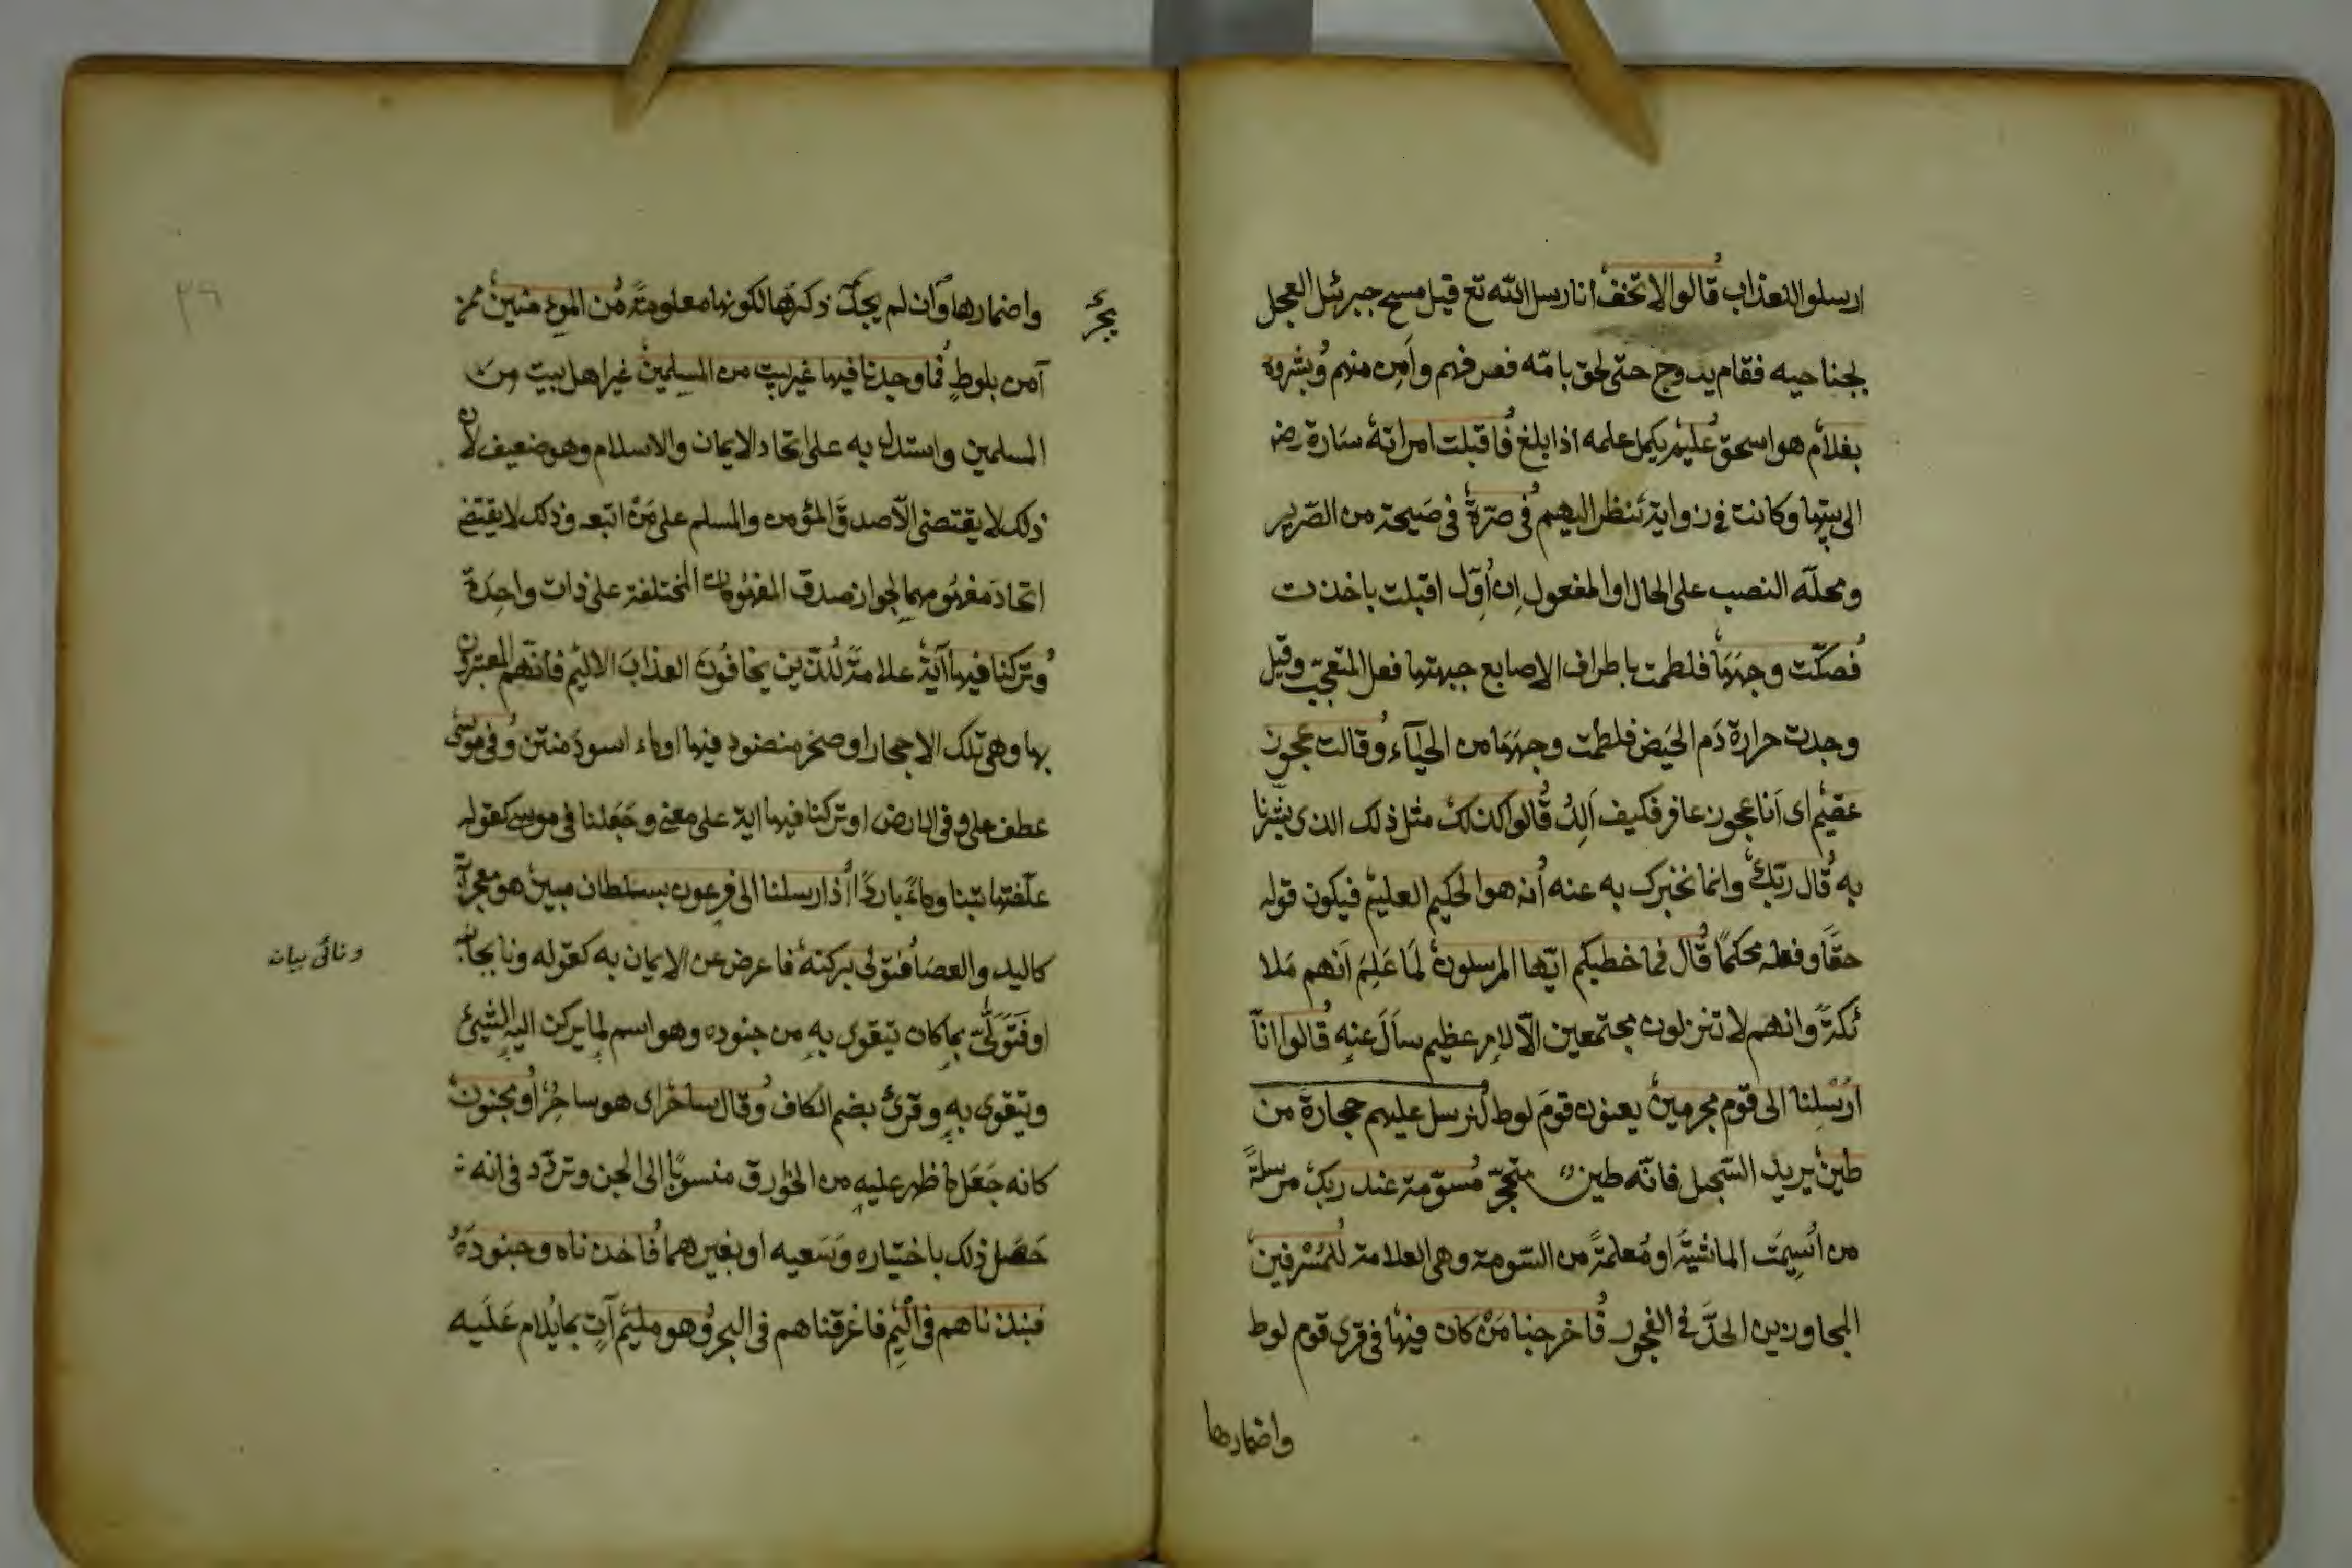 ارسلوا للعذاب قالوا لا تخف انا رسل الله تع قيل مسح جبرئيل العجل
بجناحيه فقام يدرج حتى لحق بامّه فعرفهم وأمِن منهم وبشروه
بغلام هو اسحق عليم يكمل علمه اذا بلغ فاقبلت امراته سارة رضـ
الى بيتها وكانت في زواية تنظر اليهم في صرّة في صَيحة من الصّرير
ومحلّه النصب على الحال او المفعول ان اُوّل اقبلت باخذت
فصكّت وجهَهَا فلطمت باطراف الاصابع جبهتها فعل المتعجّب وقيل
وجدت حرارة دَم الحَيض فلطمت وجهَهَا من الحيآء وقالت عجوز
عقيم اى اَنا عجوز عاقر فكيف اَلِدُ قالوا كذلك مثل ذلك الذى بشّرنا
به قال ربّك وانما نخبرك به عنه انه هو الحكيم العليم فيكون قوله
حقًّا وفعله محكمًا قال فما خطبكم ايّها المرسلون لَمَا عَلِمَ اَنهم مَلا
ئكةً وانهم لا تنزلون مجتمعين الّا لامر عظيم سأل عنه قالوا انّا
اُرْسِلنا الى قوم مجرمين يعنون قومَ لوط لنرسل عليهم حجارة من
طين يريد السّجيل فانّه طين متحجّر مُسوّمة عند ربك مرسلةً
من اُسِيمَت الماشيَة او مُعلمةً من السّومة وهى العلامة للمُسْرفين
المجاوزين الحدَّ في الفجور فاخرجنا مَنْ كان فيها في قرى قوم لوط
واضمارها
واضمارها وان لم يجر ذكرها لكونها معلومةً من المؤمنين ممن
يجرِ
آمن بلوطٍ فما وجدنا فيها غير بيت من المسلمين غير اهل بيت من
المسلمين واستدل به على اتحاد الايمان والاسلام وهو ضعيف لان
ذلك لا يقتضى الّا صدقَ المؤمن والمسلم على مَنْ اتبعه وذلك لا يقتضـ
اتحادَ مفهُومهما لجواز صدق المفهُومات المختلفة على ذات واحِدَة
وتركنا فيها آية علامةً للذين يخافُونَ العذابَ الاليم فانّهم المعتبرون
بها وهى تلك الاحجار او صخر منضود فيها او ماء اسود منتن وفي موسى
عطف على وفى الارض او تركنا فيها اية على معنى وجَعَلنا في موسى كقوله
علّفتها تبنا وماءً باردًا اذ ارسلنا الى فرعون بسلطان مبين هو معجزاته
كاليد والعصَا فتولى بركنه فاعرض عن الايمان به كقوله ونا بجانبه
ونائى بيانه
او فَتَوَلَّى بما كان يتقوى به من جنوده وهو اسم لما يركن اليه الشيئ
ويتقوى به وقرئ بضم الكاف وقال ساحر اى هو ساحرٌ او مجنون
كانه جَعَل ما ظهر عليه من الخوارق منسوبًا الى الجن وتردّد في انه
حَصَل ذلك باختياره وَسَعيه او بغيرهما فاخذناه وجنودَهُ
فنبذناهم في اليمِ فاغرقناهم في البحر وهو مليم آتٍ بما يُلام عَلَيه